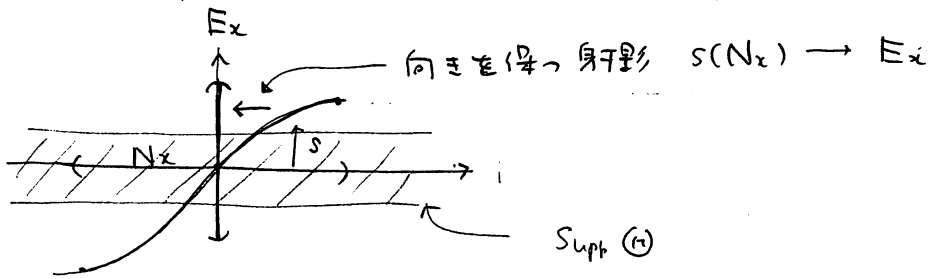 Ex
向きを保つ射影 s(Nx) → Ex
Nx
s
Supp Ⓗ